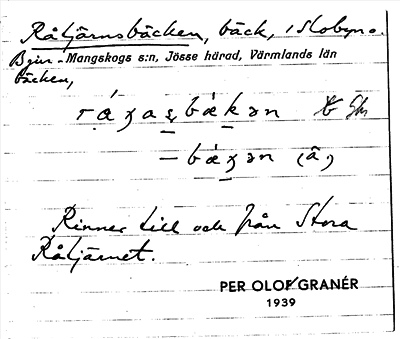 Råtjärnsbäcken, bäck, i Slobyn o.
Byn- Mangskogs s:n, Jösse härad, Värmlands län
bäcken,
Rinner till och från Stora
Råtjärnet.
PER OLOF GRANÉR
1939